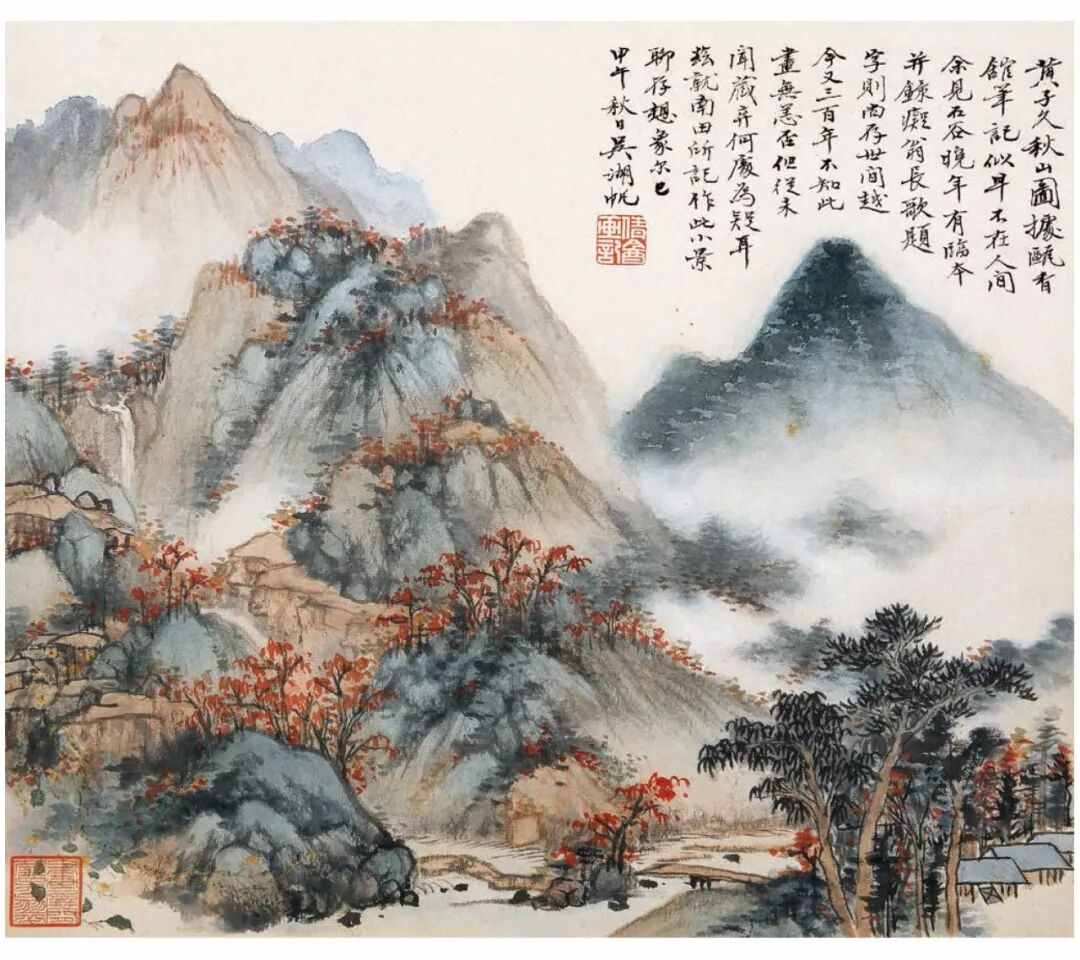 黄子久秋山圖據甌香
館筆記似早不在人间
余見石谷晚年有臨本
并錄癡翁長歌題
字則尚存世間越
今又三百年不知此
畫無恙否但從未
聞藏弆何處為疑耳
茲就南田所記作此小景
聊存想象尔已
甲午秋日吳湖帆
倩盦畫記